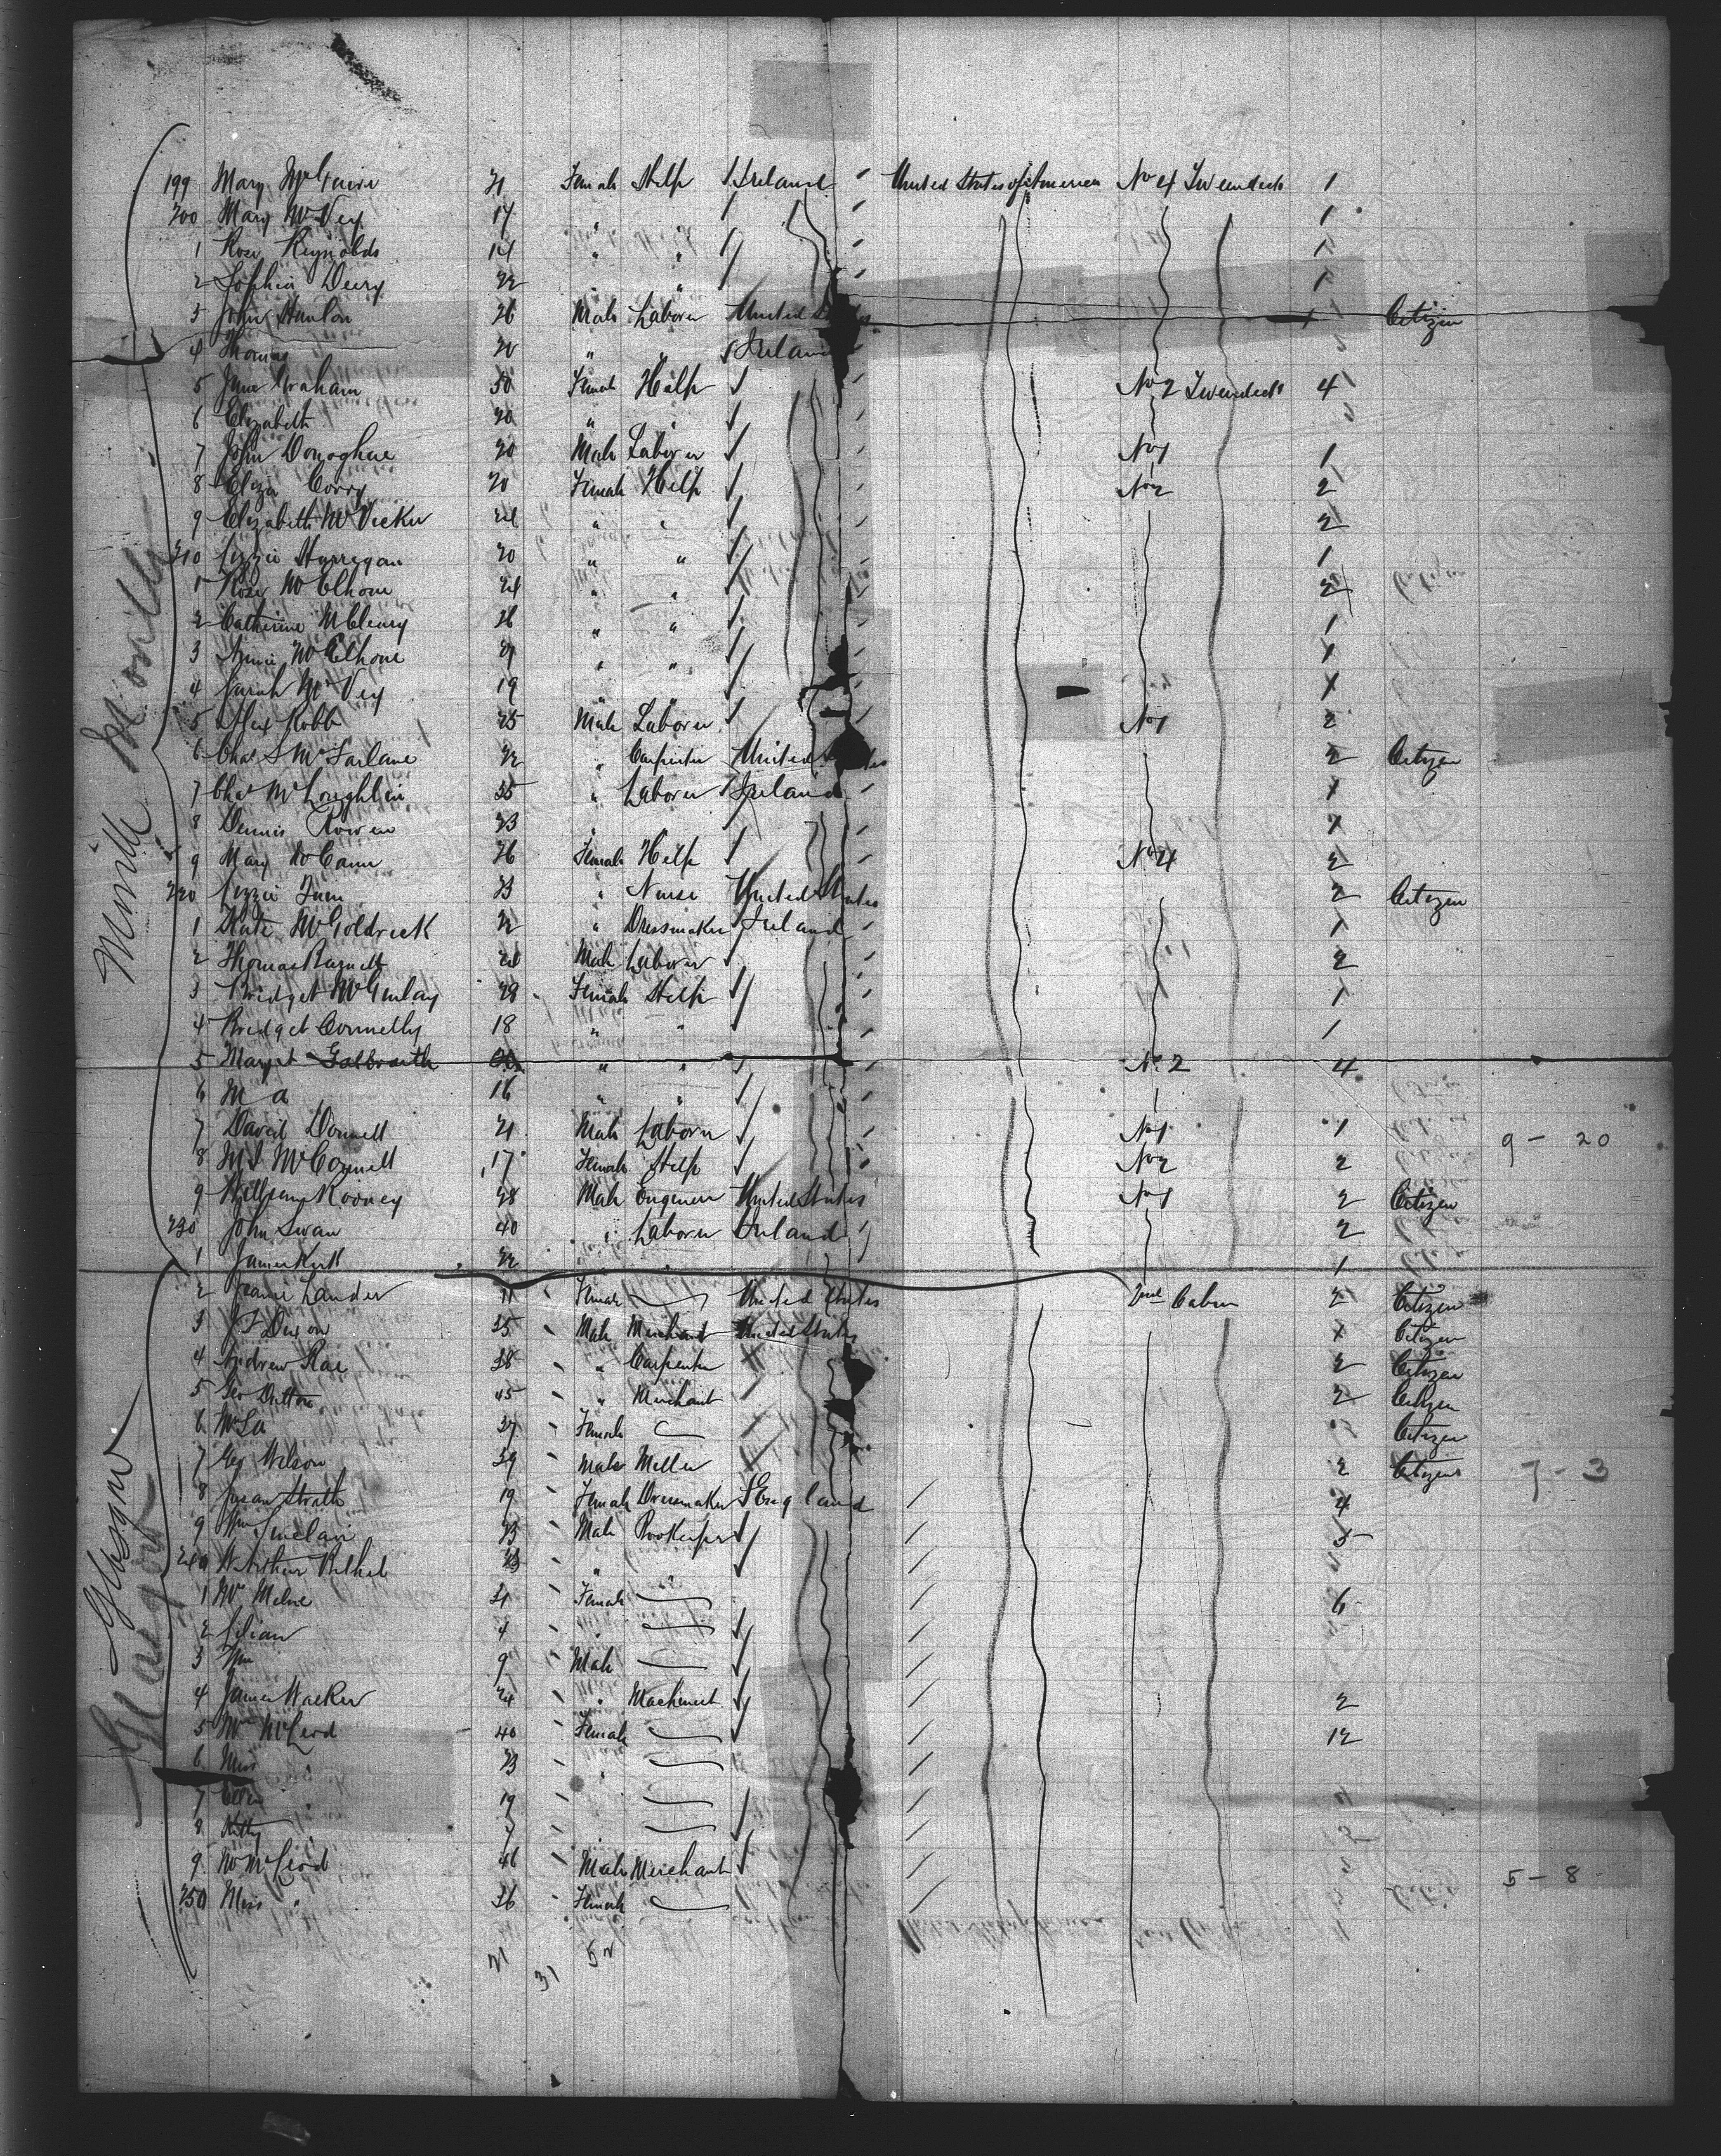 199 Mary McGuire 21 Female Help Ireland United States of America No 4 Tweendeck 1
200 Mary McVey 17 " 1
1 Rose Reynolds 14 " " 1
2 Sophia Deery 22 " " 1
3 John Hanlon 26 Male Laborer United States 1 Citizen
4 Thomas 20 " " Ireland
5 Jane Graham 50 Female Help No 2 Tweendeck 4
6 Elizabeth 20 " "
7 John Donoghue 20 Male Laborer No 1 1
8 Eliza Corry 20 Female Help No 2 2
9 Elizabeth McVicker 24 " " 2
210 Lizzie Harregan 20 " " 1
1 Rose McElhone 24 " " 2
2 Catherine McCleary 26 " " 1
3 Annie McElhone 21 " " 1
4 Sarah McVey 19 " " 1
5 Alex Robb 25 Male Laborer No 1 2
6 Chas S McFarlane 22 " Carpenter United States 2 Citizen
7 Chas McLoughlin 55 " Laborer Ireland 1
8 Dennis Rowen 23 " 1
9 Mary McCann 26 Female Help No 4 2
220 Lizzie 23 " Nurse United States 2 Citizen
1 Kate McGoldrick 22 " Dressmaker Ireland 1
2 Thomas 24 Male Laborer 2
3 Bridget McGinlay 28 Female Help 1
4 Bridget Connelly 18 " " 1
5 Margt Galbraith " " No 2 4
6 M a 16 " "
7 David Donnell 21 Male Laborer No 1 1 9 - 20
8 McConnell 17 Female Help No 2 2
9 William Rooney 28 Male Engineer United States No 1 2 Citizen
230 John Swan 40 " Laborer Ireland 2
1 James Kirk 22 " " 1
2 Lander 11 Female United States 2nd Cabin 2 Citizen
3 Dixon 35 Male Merchant United States 1 Citizen
4 Andrew Rae 38 " Carpenter 2 Citizen
5 Geo Dutton 45 " Merchant 2 Citizen
6 37 Female Citizen
7 Wilson 39 Male Miller 2 Citizen 7 - 3
8 Susan Strath 19 Female Dressmaker England 4
9 Wm Sinclair 23 Male Bookeeper 3
240 Arthur 23 " "
1 Mrs Milne 31 Female 6
2 Lilian 4 "
3 Wm 9 Male
4 James Walker 24 " Machinist 2
5 Mrs McLeod 40 Female 12
6 Miss 23 "
7 19 "
8 Kitty 7 "
9 Mr McLeod 46 Male Merchant 5 - 8
250 Miss " 26 Female
21 31 52
Glasgow
Glasgow